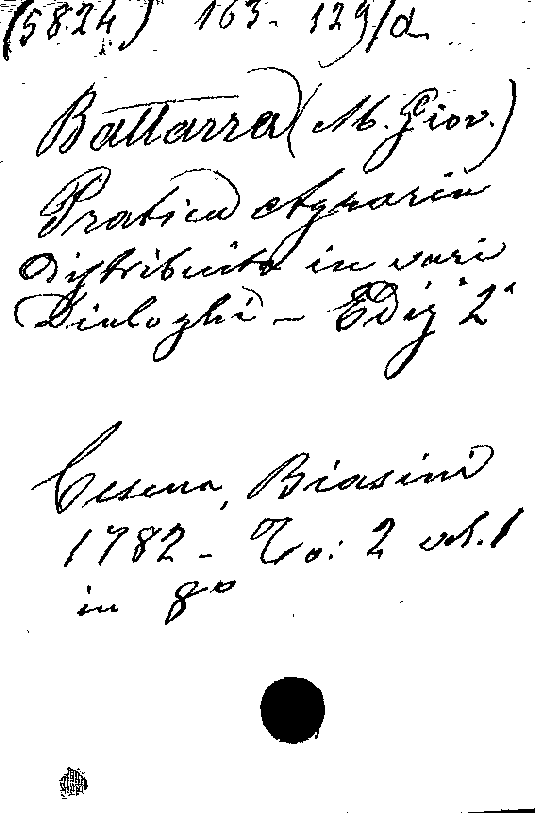 (5824) 163. 129/d
Battarra (M. Giov.)
Pratica Agraria
distribuita in vari
Dialoghi - Ediz 2ª
Cesena, Biasini
1782 - To: 2 vol. 1
in 8º